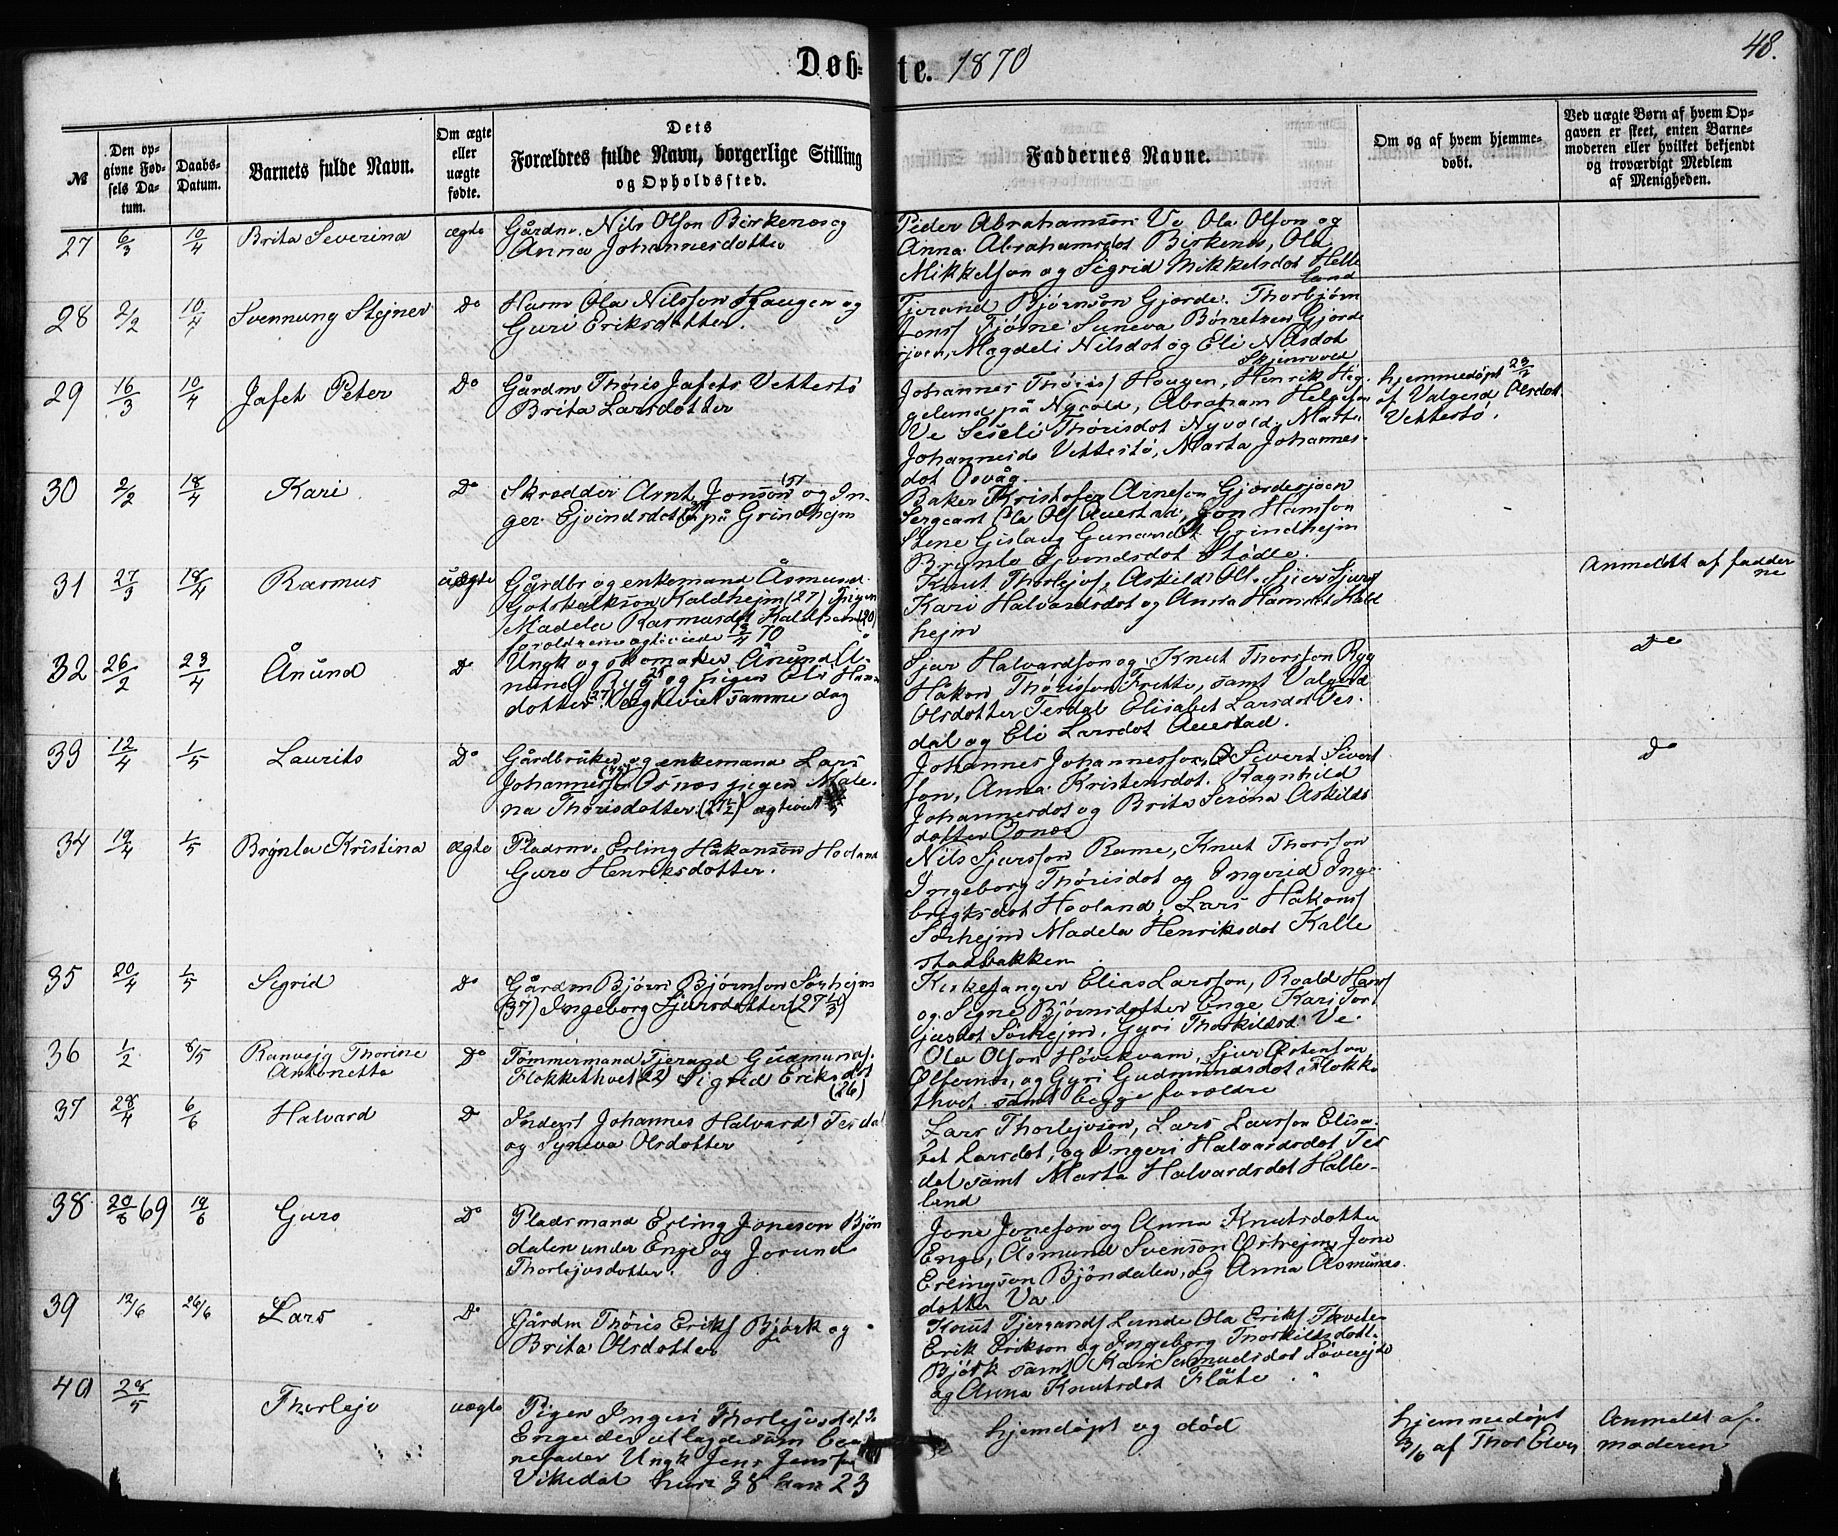 Døbte. 1870
48.
№
Den opgivne Fødsels Datum.
Daabs-Datum.
Barnets fulde Navn.
Om ægte eller uægte fødte.
Dets Forældres fulde Navn, borgerlige Stilling og Opholdssted.
Faddernes Navne.
Om og af hvem hjemmedøbt.
Ved uægte Børn af hvem Opgaven er skeet, enten Barnemoderen eller hvilket bekjendt og troværdigt Medlem af Menigheden.
27 6/3 10/4 Brita Severina ægte
Gårdm. Nils Olson Birkenes og
Anna Johannesdotter
Peder Abrahamson Ve Ola Olson og
Anna Abrahamsdot Birkenes, Ola
Mikkelson og Sigrid Mikkelsdot Helle
land
28 2/2 10/4 Svennung Stejner Do
Husm Ola Nilsson Haugen og
Guri Eriksdotter.
Tjerand Bjørnson Gjerde. Thorbjørn
Jons Fjørne Suneva Børretzen Gjerde
sjoen, Magdeli Nilsdot og Eli Nilsdot
29 16/3 10/4 Jafet Peter Do
Gårdm Thøris Jafets Vettestø
Brita Larsdotter
Johannes Thøriss Haugen, Henrik Hig
gelund på Nyvold, Abraham Helgeson
Ve Seseli Thørisdot Nyvold, Marta
Johannesdo Vettestø, Marta Johannes-
dot Osvåg.
hjemmedøpt 23/3
af Valgerd Olsdot
Vettestø.
30 2/2 18/4 Kari Do
Skrædder Arnt Jonson og In-
ger Ejvindsdotter på Grindhejm
Baker Kristofer Arneson Gjerdesjoen
Sergeant Ola Ols Auestad. Jon Hansson
Stene Gislaug Gunarsdt Grindhejm
Brynla Ejvendsdot Stødle.
31 27/3 18/4 Rasmus uægte
Gårdbr og enkemand Åsmund
Gotskalkson Kaldhejm (27) Pigen
Madela Rasmusdot Kaldhejm (20)
foreldrene ægteviede 18/4 70
Knut Thorlejvs, Askild Ols. Sjur Sjurs
Kari Halvardsdot og Anna Hansdot Kald
hejm
Anmeldt af fadder
ne
32 26/2 23/4 Ånund Do
Ungk og skomaker Ånund Å-
nunds Ryg og pigen Eli Hans
dotter (27) Ægteviet samme dag
Sjur Halvardson og Knut Thorsson Ryg
Håkon Thørisson Frette, samt Valgerd
Olsdotter Tesdal Elisabet Larsdot Tes-
dal og Eli Larsdot Auestad.
Do
33 12/4 1/5 Laurits Do
Gårdbruker og enkemand Lars
Johannesson Osnes pigen Male-
na Thørisdotter (27 1/2) ægteviet
Johannes Johannesson, Sivert Sivert
son, Anna Kristensdot. Ragnhild
Johannesdot og Brita Serina Askilds
dotter Osnes
Do
34 19/4 1/5 Brynla Kristina ægte
Pladsm. Erling Håkanson Hovland
Guro Henriksdotter.
Nils Sjursson Rame, Knut Thorsson
Ingeborg Thørisdot og Ingerid Inge-
brigtsdot Hovland, Lars Håkons
Sørhejm Madela Henriksdot Kalle
stadbakken
35 20/4 1/5 Sigrid Do
Gårdm Bjørn Bjørnson Sørhejm
(37) Ingeborg Sjursdotter (27 1/3)
Kirkesanger Elias Larsson, Roald Hans
og Signe Bjørnsdotter Enge, Kari Tort
jusdot Sørhejm, Gyri Thorkildsd Ve.
36 1/2 8/5 Ranvejg Thorine
Antonetta Do
Tømmermand Tjerand Gudmunds.
Flokkethvet (22) Sigrid Eriksdot
(26)
Ola Olson Høvikvam, Sjur Østenson
Ølfernes, og Gyri Gudmundsdot Flokke
thvet samt begge foreldre
37 28/4 6/6 Halvard Do
Inderst Johannes Halvards Tesdal
og Syneva Olsdotter
Lars Thorlejvson, Lars Larsson Elisa-
bet Larsdot, og Ingeri Halvardsdot Tes
dal samt Marta Halvardsdot Halle-
land
38 20/8 69 19/6 Guro Do
Pladsmand Erling Joneson Bjøn
dalen under Enge og Jorund
Thorlejvsdotter.
Jone Joneson og Anna Knutsdotter
Enge, Åsmund Svenson Østhejm, Jone
Erlingson Bjøndalen, og Anna Åsmunds
dotter Va
39 12/6 26/6 Lars Do
Gårdm Thøris Eriks Bjørk og
Brita Olsdotter
Knut Tjerands Lunde Ola Eriks Thvete-
Erik Erikson og Ingeborg Thorkildsdott.
Bjørk samt Kari Samuelsdot Løverejde
og Anna Knutsdot Flåte
40 28/5 Thorlejv uægte
Pigen Ingeri Thorlejvsdot
Enge der utlagde som bar
nefader Ungk Jens Jensson
Vikedal hun 38 han 23
hjemdøpt og død
hjemmedøpt
3/6 af Thor Elven
Anmeldt af
moderen